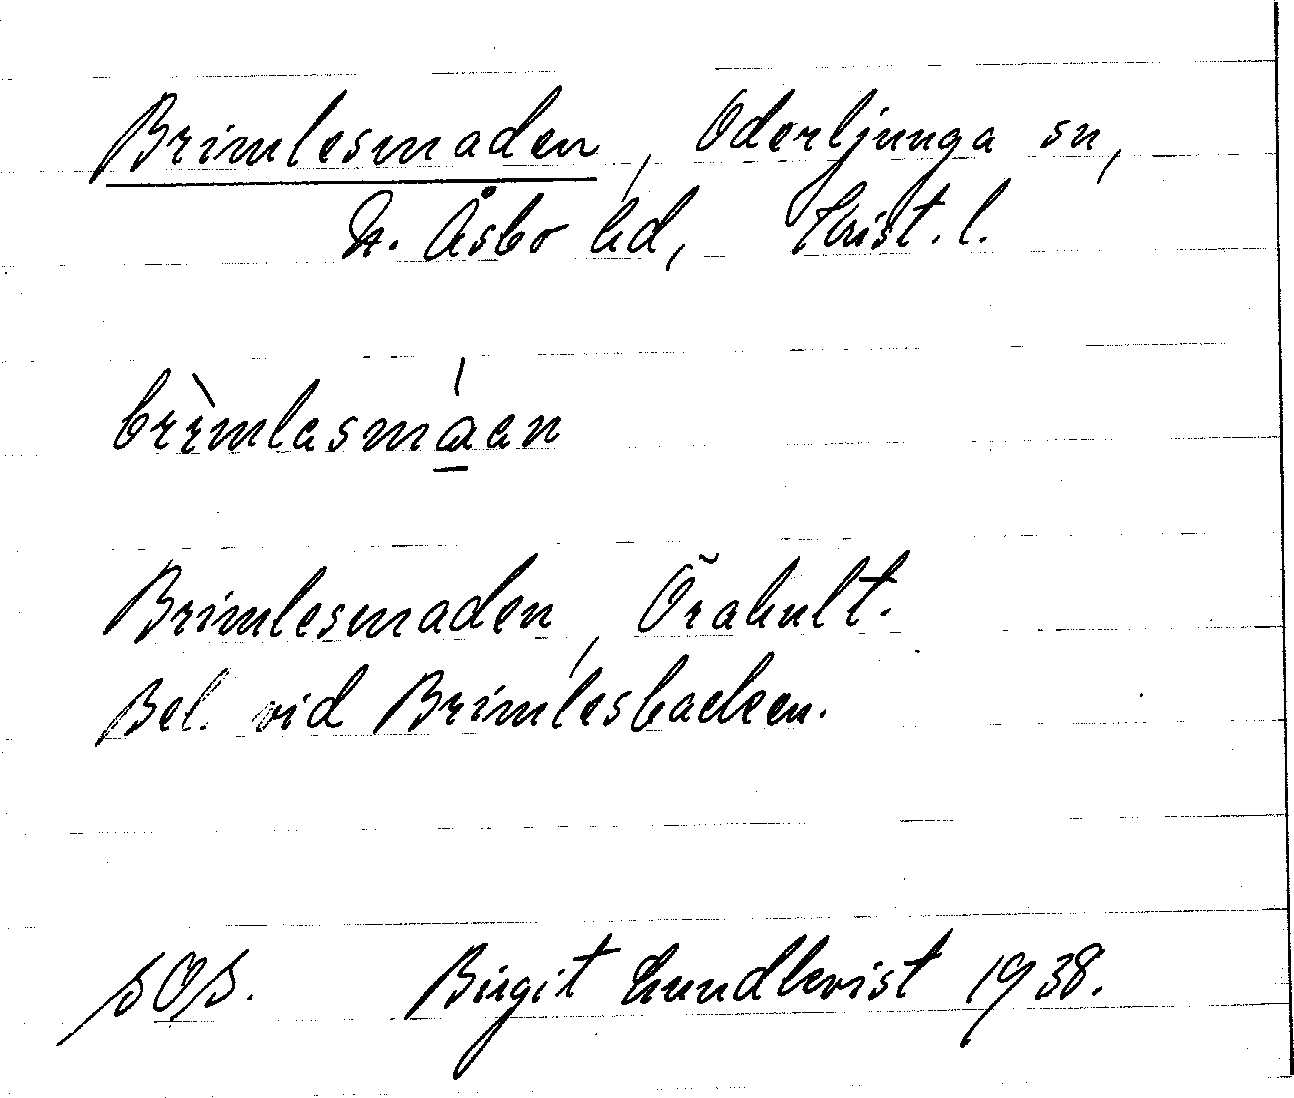 Brimlesmaden, Oderljunga sn,
N. Åsbo hd, Krist. l.
brìmlasmáan
Brimlesmaden, Örahult.
Bel. vid Brimlesbacken.
SOS. Birgit Lundkvist 1938.